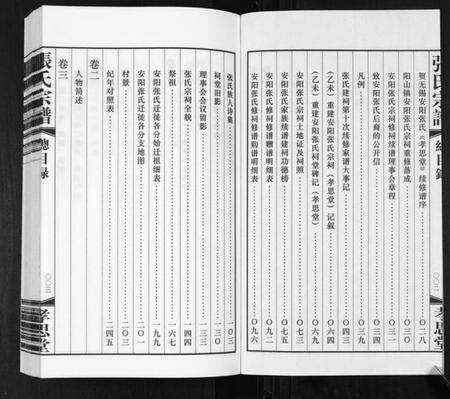 張氏宗譜
總目錄
〇〇二
孝思堂
贺无锡安阳张氏《孝思堂》续修谱序 〇二八
阳山镇安阳张氏宗祠重修落成 〇三一
安阳张氏宗祠修祠续谱理事会章程 〇三四
致安阳张氏后裔的公开信 〇三六
凡例 〇三九
张氏建祠第十次续修家谱大事记 〇四三
(乙未)重建安阳张氏宗祠(孝思堂)记叙
(乙未)重建安阳张氏祠堂碑记(孝思堂)
安阳张氏宗祠土地证及祠照 〇七五
安阳张氏家族续谱建祠功德榜
安阳张氏修祠修谱赠谱明细表
安阳张氏修祠修谱购谱明细表 〇九六
张氏族人诗集 一〇三
祠堂旧影 一三〇
理事会会议留影 一三三
张氏宗祠全貌 一四四
祭祖 一六七
安阳张氏迁徙各分始迁祖细表 一九九
安阳张氏迁徙各分支地图 二〇一
村景 二〇三
纪年对照表 二四五
卷二
人物简述
卷三
張氏宗譜
總目錄
〇〇三
孝思堂